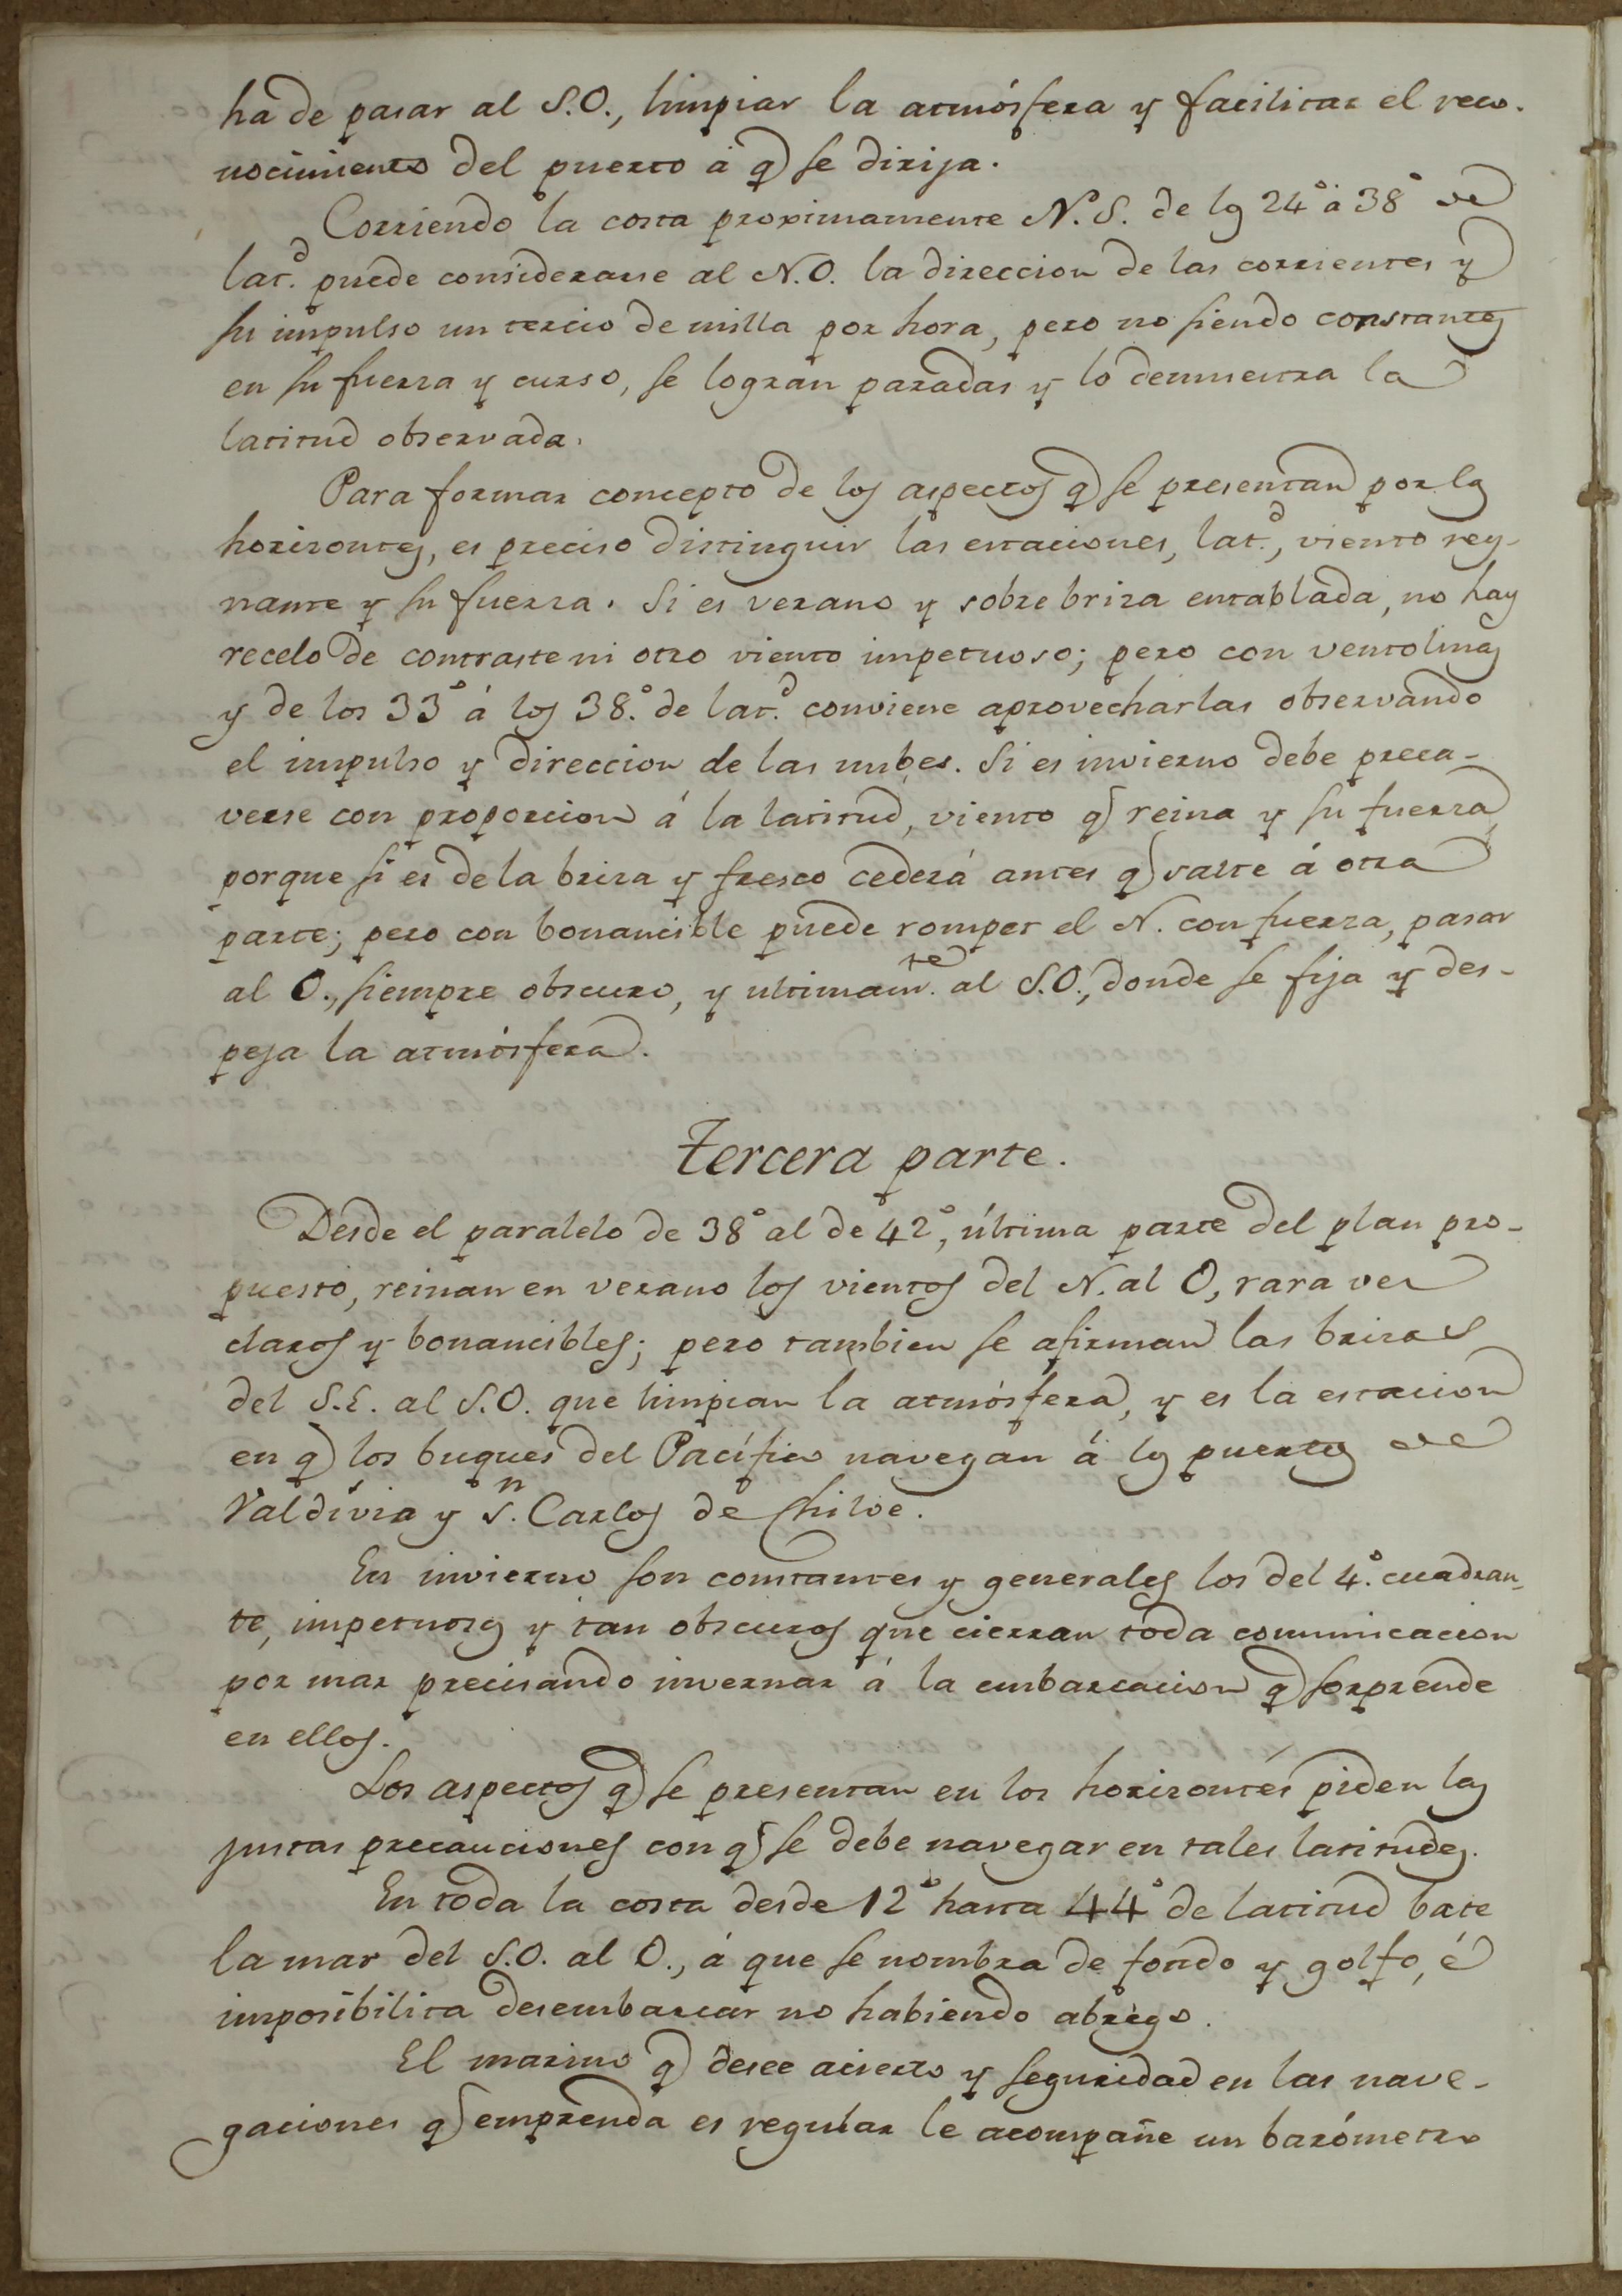 ha de pasar al S.O., limpiar la atmósfera y facilitar el reco-
nocimiento del puerto á q. se dirija.
Corriendo la costa proximamente N.S. de los 24° á 38° de
lat.d puede considerarse al N.O. la direccion de las corrientes y
su impulso un tercio de milla por hora, pero no siendo constantes
en su fuerza y curso, se logran paradas y lo demuestra la
latitud observada.
Para formar concepto de los aspectos q. se presentan por los
horizontes, es preciso distinguir las estaciones, lat.d, viento rey-
nante y su fuerza. Si es verano y sobre briza entablada, no hay
recelo de contraste ni otro viento impetuoso; pero con ventolinas
y de los 33° á los 38.° de lat.d conviene aprovecharlas observando
el impulso y direccion de las nubes. Si es invierno debe preca-
verse con proporcion á la latitud, viento q. reina y su fuerza,
porque si es de la briza y fresco cederá antes q. salte á otra
parte; pero con bonancible puede romper el N. con fuerza, pasar
al O., siempre obscuro, y ultimam.te al S.O., donde se fija y des-
peja la atmósfera.
Tercera parte.
Desde el paralelo de 38° al de 42°, última parte del plan pro-
puesto, reinan en verano los vientos del N. al O, rara vez
claros y bonancibles; pero tambien se afirman las brizas
del S.E. al S.O. que limpian la atmósfera, y es la estacion
en q. los buques del Pacífico navegan á los puertos de
Valdivia y S.n Carlos de Chiloe.
En invierno son constantes y generales los del 4.° cuadran-
te, impetuosos y tan obscuros que cierran toda comunicacion
por mar precisando invernar á la embarcacion q. sorprende
en ellos.
Los aspectos q. se presentan en los horizontes piden las
justas precauciones con q. se debe navegar en tales latitudes.
En toda la costa desde 12° hasta 44° de latitud bate
la mar del S.O. al O., á que se nombra de fondo y golfo, é
imposibilita desembarcar no habiendo abrigo.
El marino q. desee acierto y seguridad en las nave-
gaciones q. emprenda es regular le acompañe un barómetro